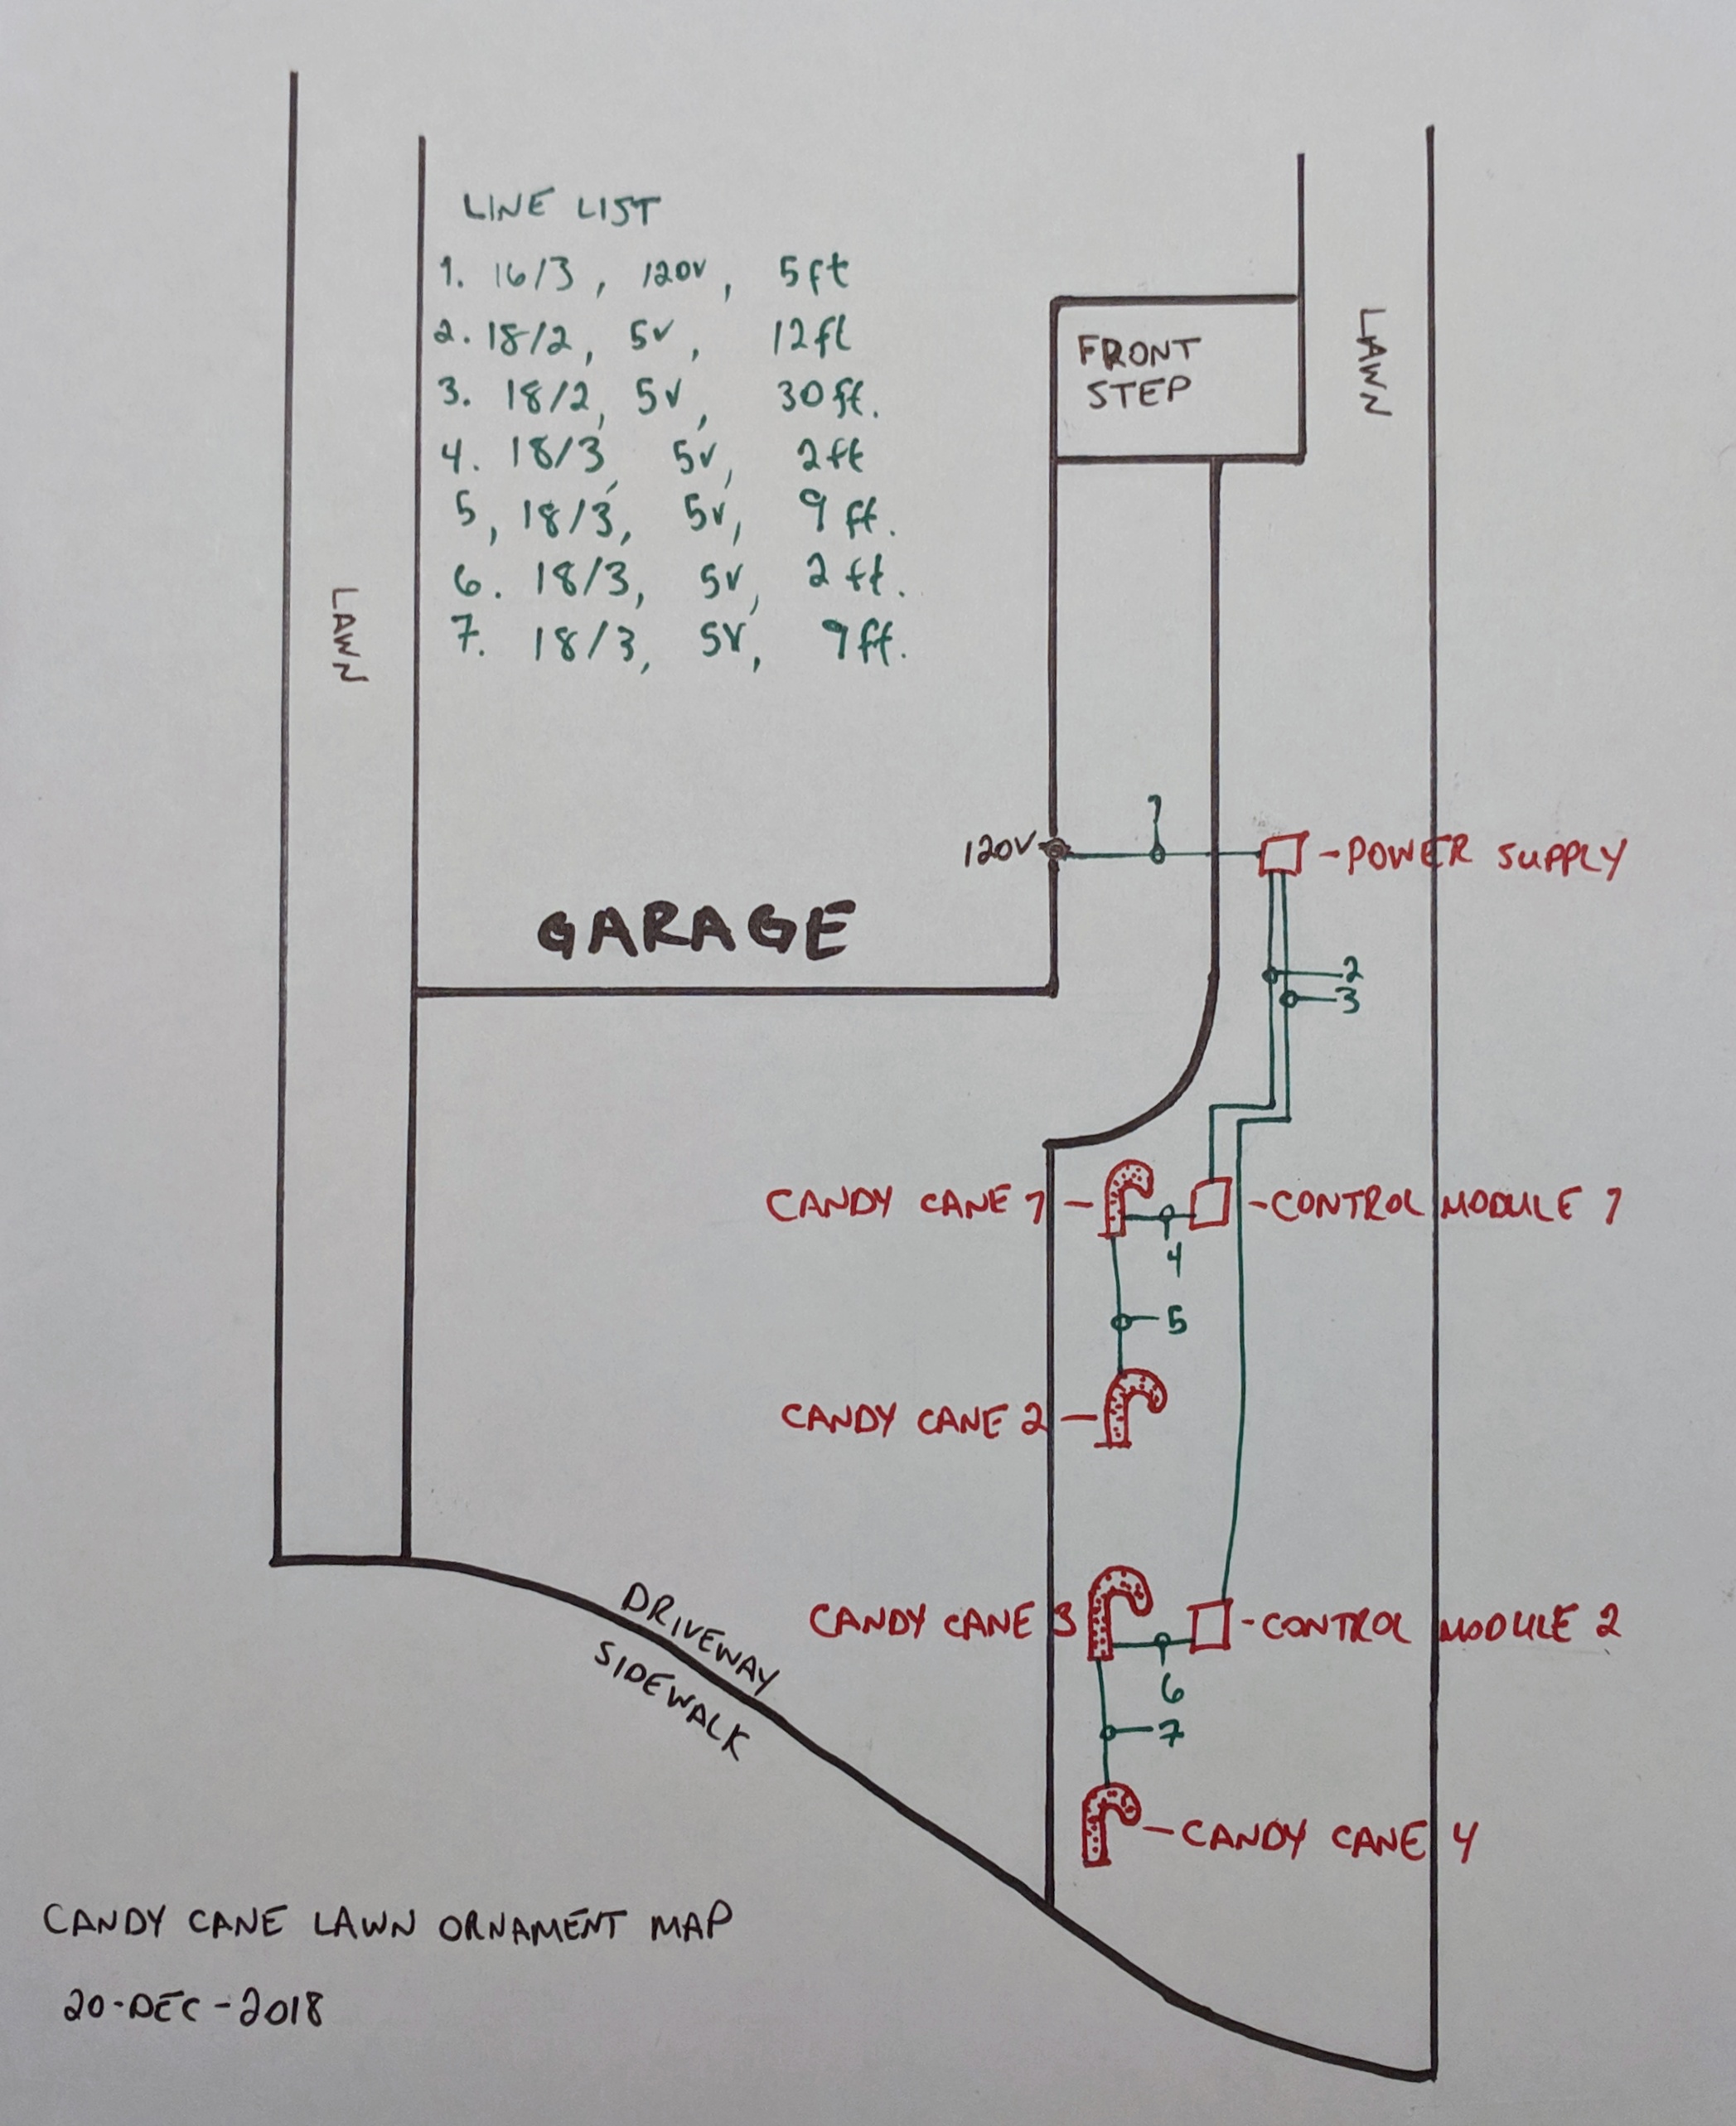 LINE LIST
1. 16/3, 120V, 5ft
2. 18/2, 5V, 12ft
3. 18/2, 5V, 30ft.
4. 18/3, 5V, 2ft
5, 18/3, 5V, 9ft.
6. 18/3, 5V, 2ft.
7. 18/3, 5V, 9ft.
FRONT
STEP
LAWN
LAWN
1
120V
POWER SUPPLY
GARAGE
2
3
CANDY CANE 1
CONTROL MODULE 1
4
5
CANDY CANE 2
DRIVEWAY
SIDEWALK
CANDY CANE 3
CONTROL MODULE 2
6
7
CANDY CANE 4
CANDY CANE LAWN ORNAMENT MAP
20-DEC-2018